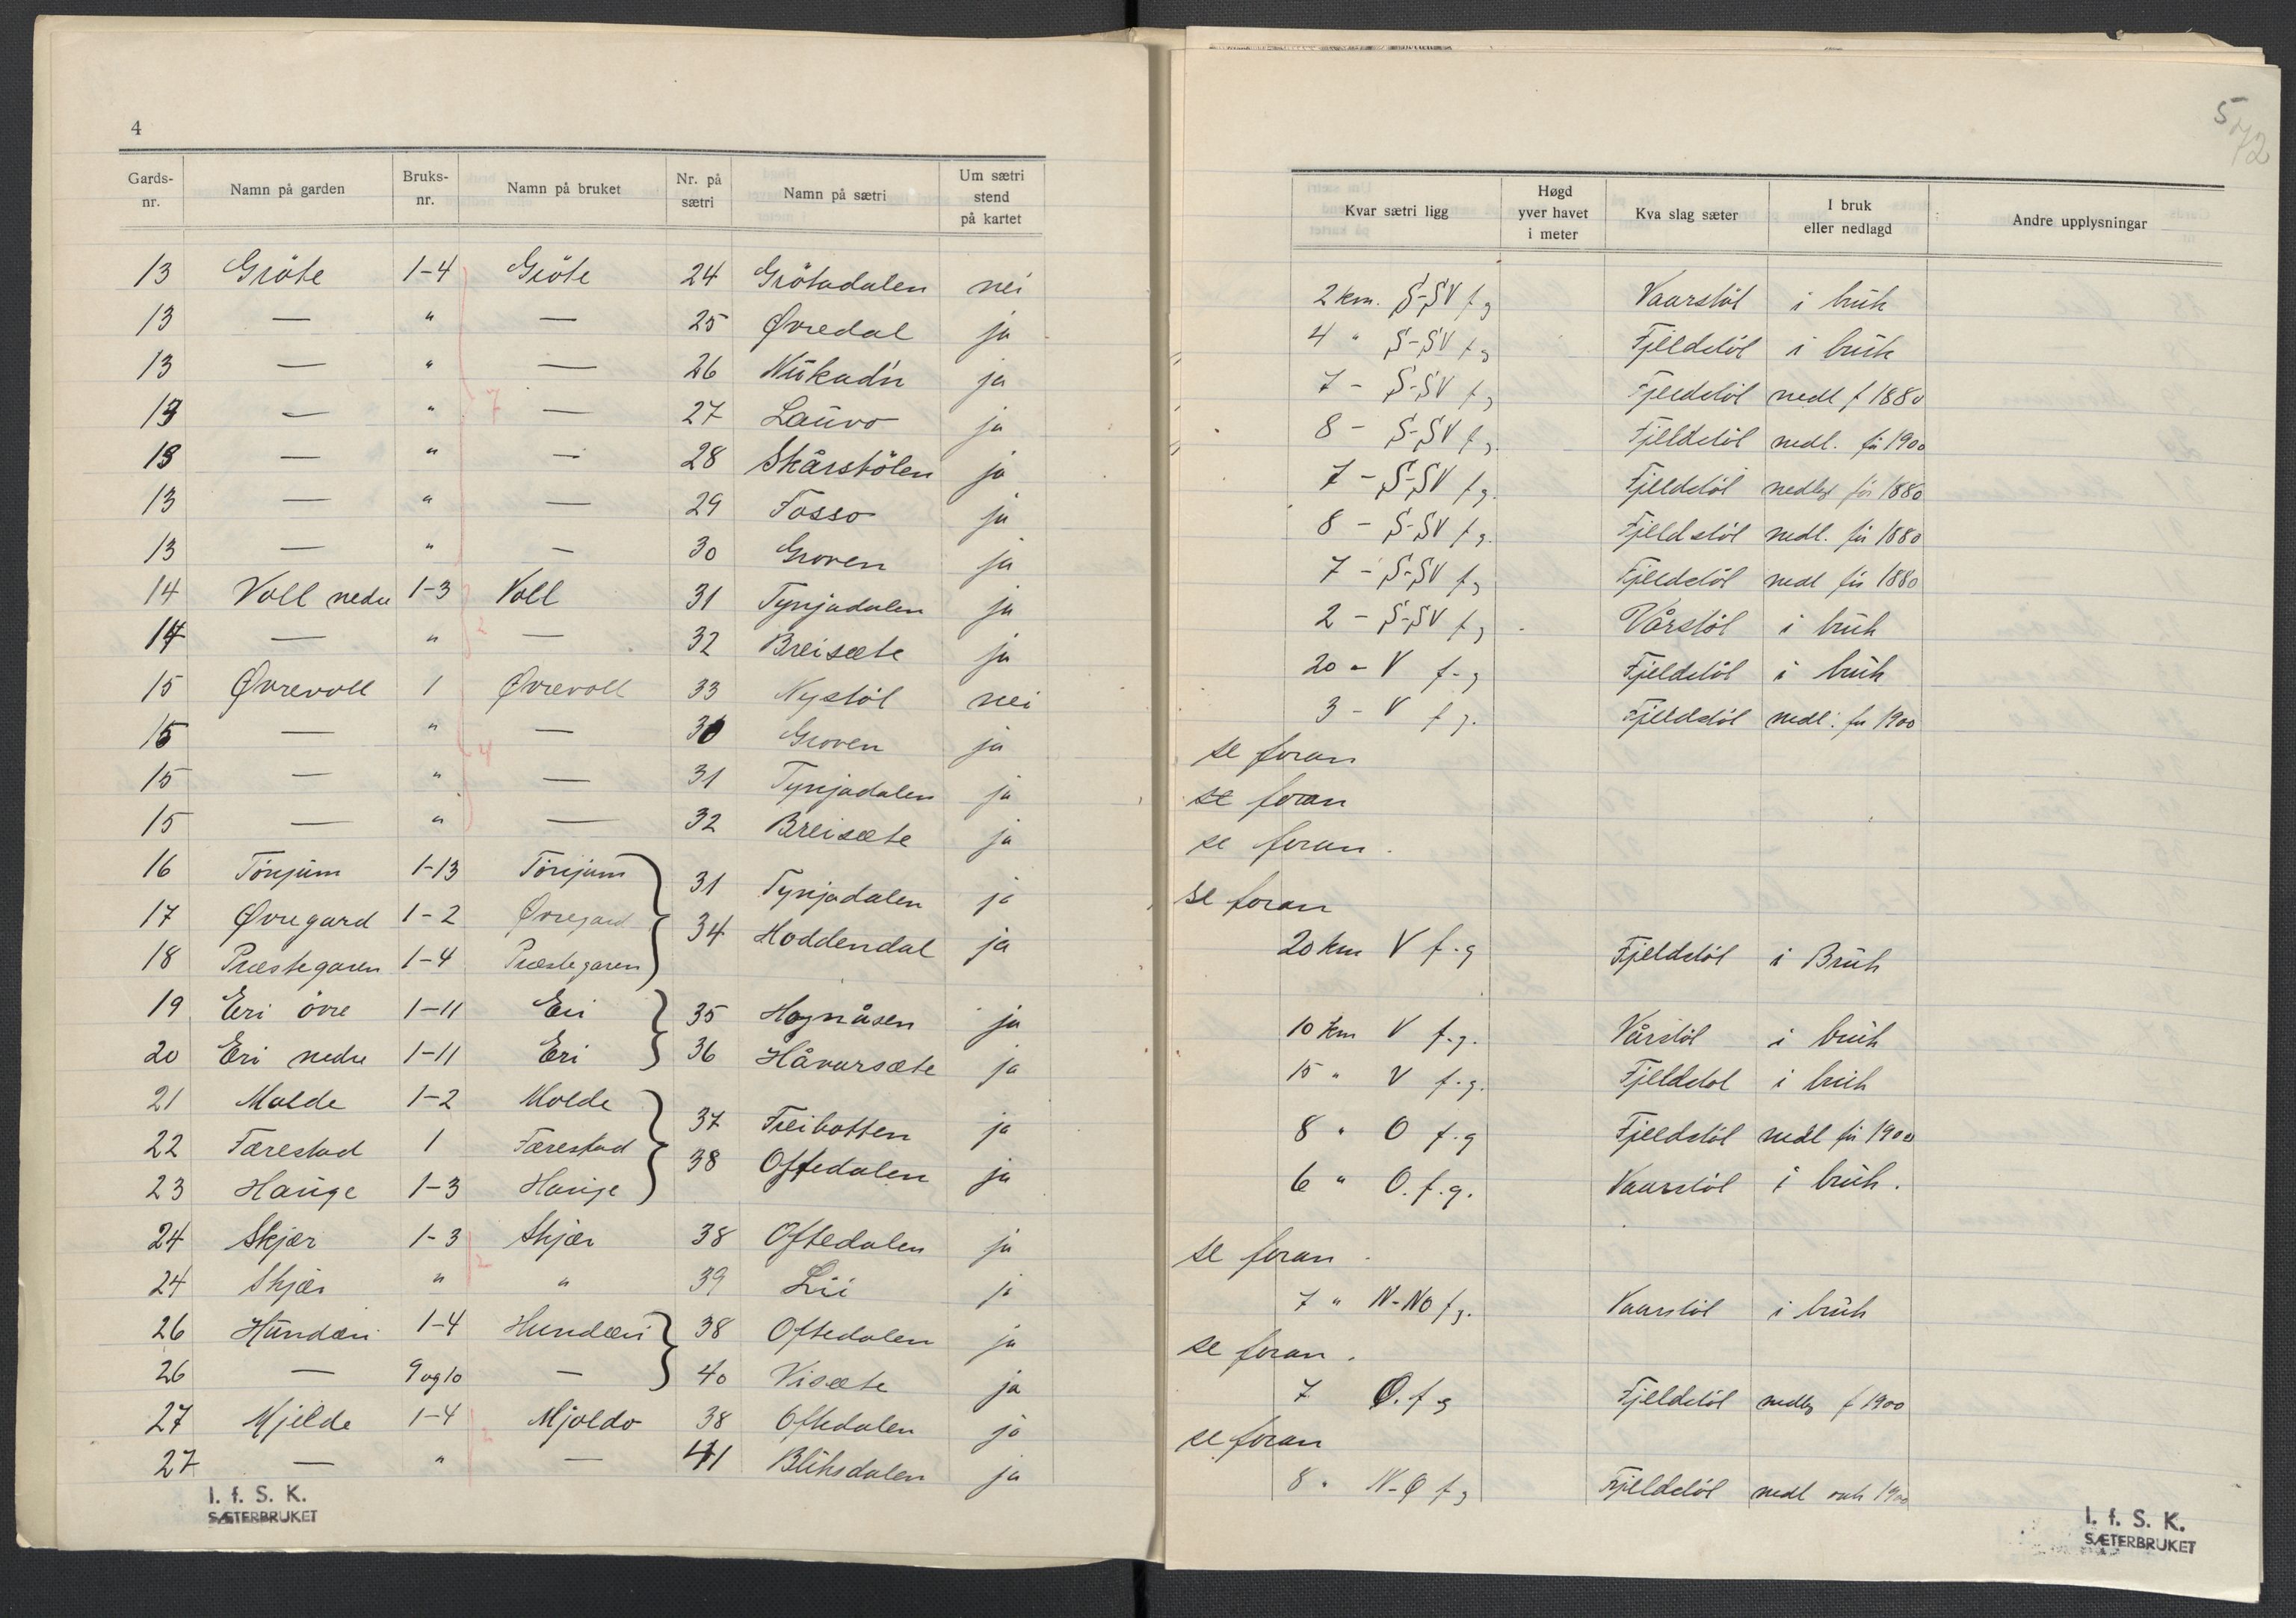 4
Gards-nr. Namn på garden Bruks-nr. Namn på bruket Nr. på sætri Namn på sætri Um sætri stend på kartet
13 Gröte 1-4 Gröte 24 Grötadalen nei
13 — " — 25 Øvredal ja
13 — " — 26 Nükad'n ja
13 — " — 27 Laŭvo ja
13 — " — 28 Skårstölen ja
13 — " — 29 Fosso ja
13 — " — 30 Groven ja
14 Voll nedre 1-3 Voll 31 Tynjadalen ja
14 — " — 32 Breisæte ja
15 Øvrevoll 1 Øvrevoll 33 Nystöl nei
15 — " — 30 Groven ja
15 — " — 31 Tynjadalen ja
15 — " — 32 Breisæte ja
16 Tönjum 1-13 Tönjum 31 Tynjadalen ja
17 Øvregard 1-2 Øvregard 34 Hoddendal ja
18 Præstegaren 1-4 Præstegaren
19 Eri övre 1-11 Eri 35 Hognåsen ja
20 Eri nedre 1-11 Eri 36 Håvarsæte ja
21 Molde 1-2 Molde 37 Freibotten ja
22 Færestad 1 Færestad 38 Oftedalen ja
23 Hauge 1-3 Hauge
24 Skjær 1-3 Skjær 38 Oftedalen ja
24 Skjær " " 39 Lii ja
26 Hundæri 1-4 Hundæri 38 Oftedalen ja
26 — 9 og 10 — 40 Visæte ja
27 Mjelde 1-4 Mjoldo 38 Oftedalen ja
27 — " — 41 Bliksdalen ja
7
2
4
2
2
I. f. S. K.
SÆTERBRUKET
5
72
Kvar sætri ligg Høgd yver havet i meter Kva slag sæter I bruk eller nedlagd Andre upplysningar
2 km. S-SV f g Vaarstöl i bruk
4 " S-SV f g Fjeldstöl i bruk
7 - S-SV f g Fjeldstöl nedl f 1880
8 - S-SV f g. Fjeldstöl nedl. för 1900
7 - S-SV f g. Fjeldstöl nedlag för 1880
8 - S-SV f g. Fjeldstöl nedl. för 1880
7 - S-SV f g Fjeldstöl nedl för 1880
2 - S-SV f g Vårstöl i bruk
20 - V f-g Fjeldstöl i bruk
3 - V f g. Fjeldstöl nedl. för 1900
se foran
se foran
se foran.
se foran
20 km V f.g Fjeldstöl i Bruk
10 km V f.g. Vårstöl i bruk
15 " V f.g. Fjeldstöl i bruk
8 " O f.g Fjeldstöl nedl för 1900
6 " O. f.g. Vaarstöl i bruk.
se foran.
7 " N-NO f g. Vaarstöl i bruk
se foran.
7 Ø. f g Fjeldstöl nedlag f 1900
se foran
8 " N-Ø f g Fjeldstöl nedl 1900
I. f. S. K.
SÆTERBRUKET